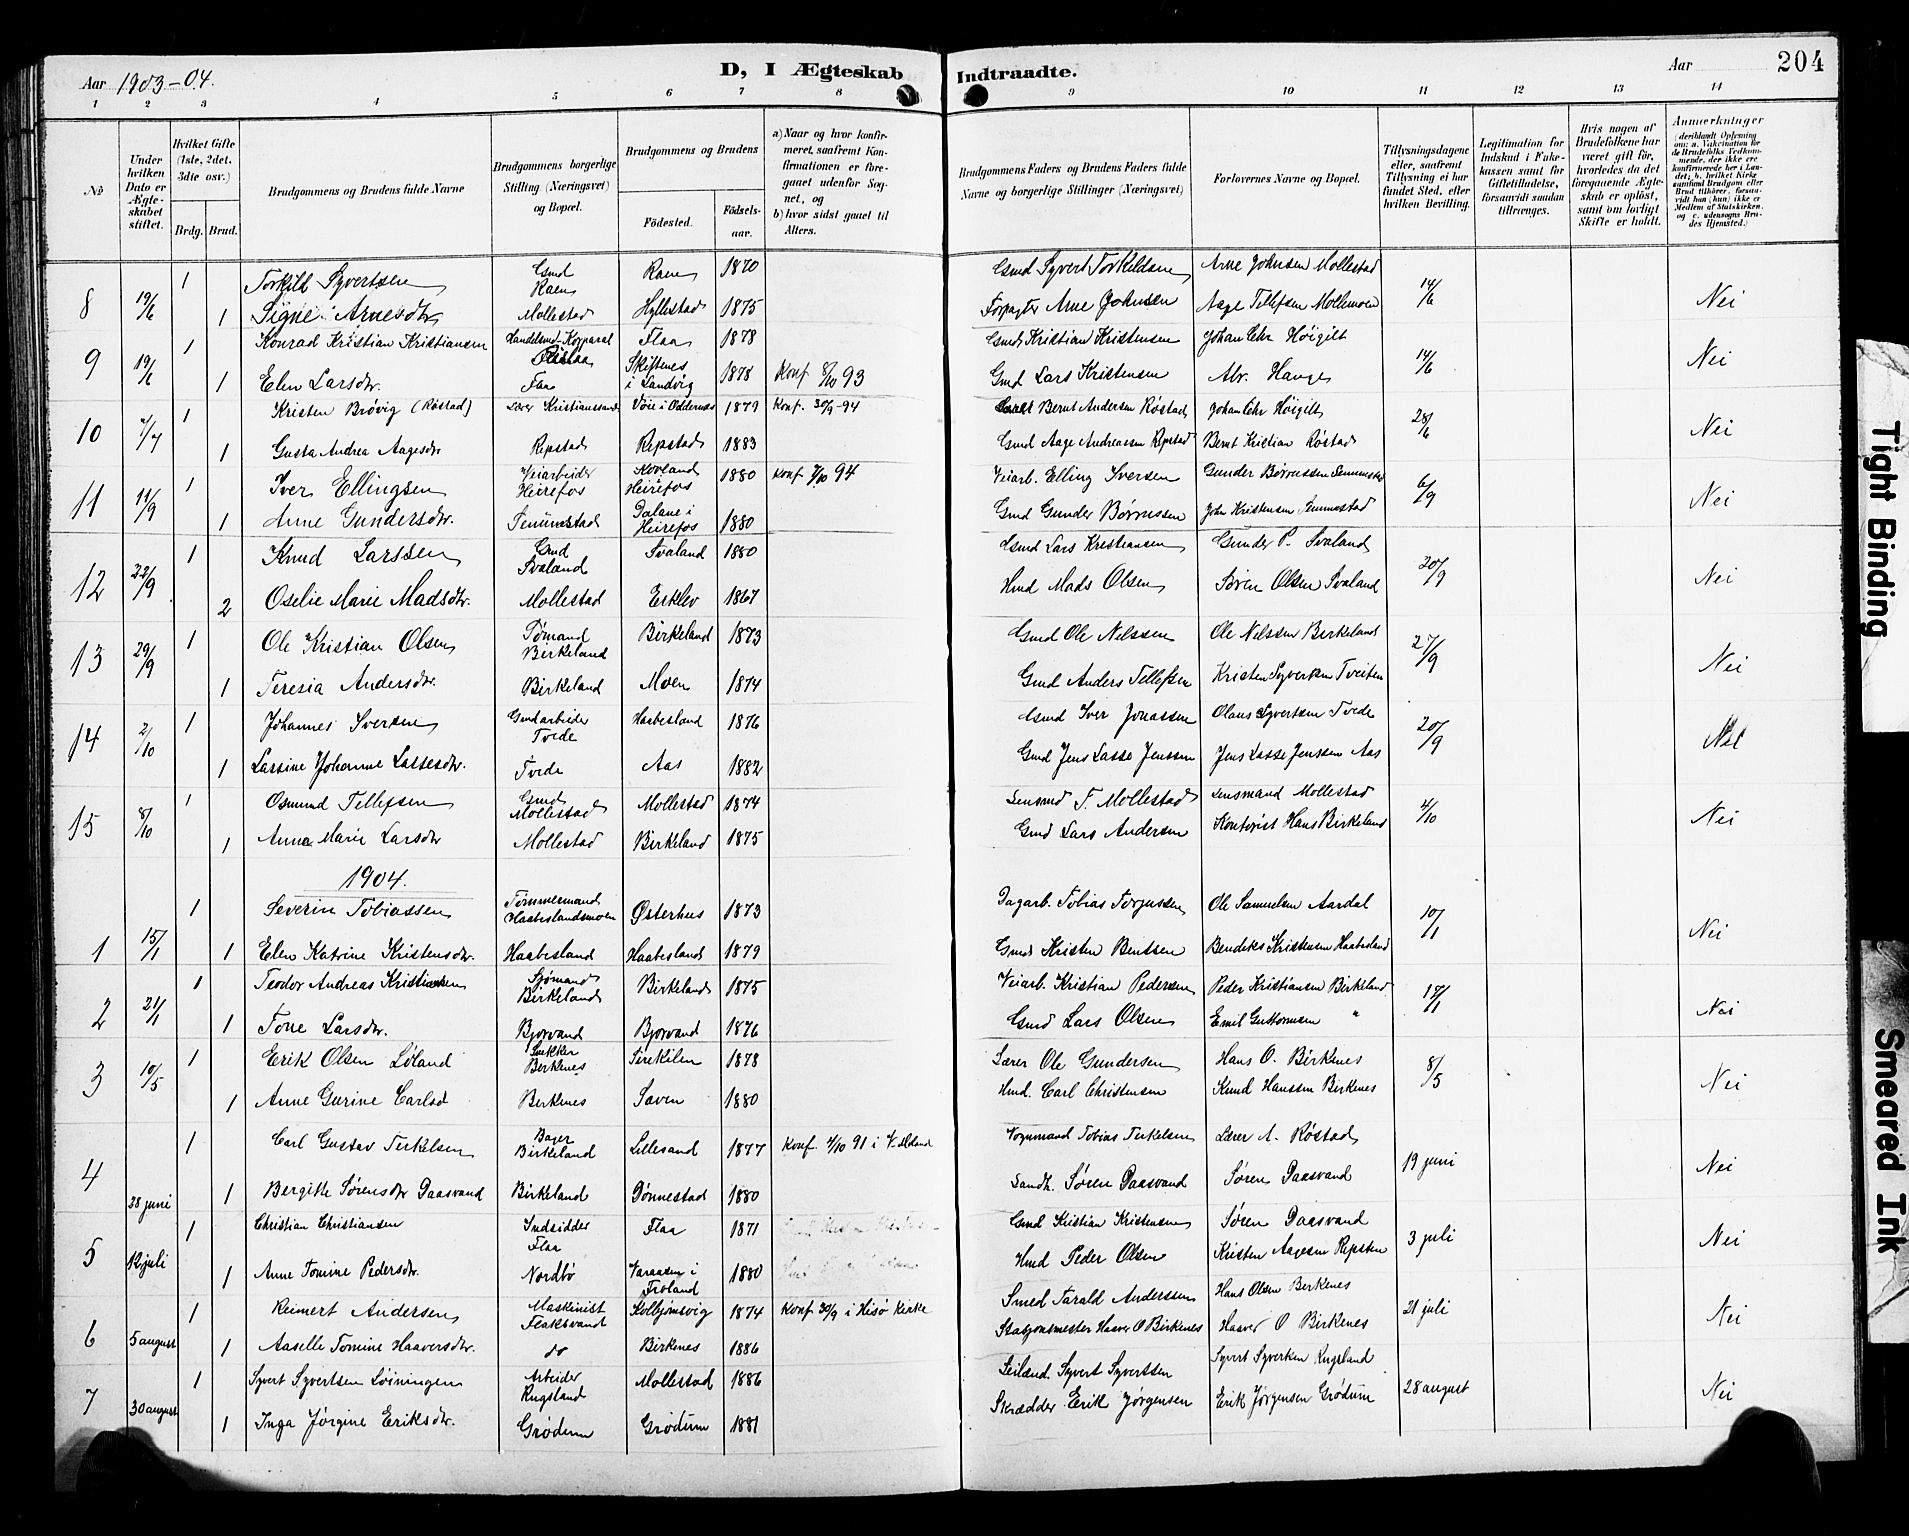 Aar 1903-04.
D, I Ægteskab Indtraadte.
Aar 204
1 2 3 4 5 6 7 8 9 10 11 12 13 14
No
Under hvilken Dato er Ægteskabet stiftet.
Hvilket Gifte (1ste, 2det, 3die osv.)
Brdg. Brud.
Brudgommens og Brudens fulde Navne
Brudgommens borgerlige Stilling (Næringsvei) og Bopæl.
Brudgommens og Brudens
Fødested. Fødselsaar.
a) Naar og hvor konfirmeret, saafremt Konfirmationen er foregaaet udenfor Sognet, og
b) hvor sidst gaaet til Alters.
Brudgommens Faders og Brudens Faders fulde Navne og borgerlige Stillinger (Næringsvei)
Forlovernes Navne og Bopæl.
Tillysningsdagene eller, saafremt Tillysning ei har fundet Sted, efter hvilken Bevilling.
Legitimation for Indskud i Enkekassen samt for Giftetilladelse, forsaavidt saadan tiltrænges.
Hvis nogen af Brudefolkene har været gift før, hvorledes da det foregaaende Ægteskab er opløst, samt om lovligt Skifte er holdt.
Anmærkninger
(deriblandt Oplysning om: a. Vakcination for de Brudefolks Vedkommende, der ikke ere konfirmerede her i Landet; b. hvilket Kirkesamfund Brudgom eller Brud tilhører, forsaavidt han (hun) ikke er Medlem af Statskirken, og c. udensogns Brudes Hjemsted.)
8 19/6 1 Torkild Syvertsen Gmd Raen Raen 1870 Gmd Syvert Torkildsen Arne Johnsen Mollestad 14/6 Nei
1 Signe Arnesdtr Mollestad Hyllestad 1875 Forpagter Arne Johnsen Aage Tellefsen Mollemoen
9 19/6 1 Konrad Kristian Kristiansen Handelsmd Korporal Flaa 1878 Gmd Kristian Kristensen Johan Chr Høigilt 14/6 Nei
1 Elen Larsdtr. Flaa Skiftenes i Landvig 1878 Konf 8/10 93 Gmd Lars Kristensen Alv. Hauge
10 7/7 1 Kristen Brøvig (Røstad) Lærer Kristianssand Vøie i Oddernes 1879 Konf. 30/9-94 Bernt Andersen Røstad Johan Chr Høigilt 28/6 Nei
1 Gusta Andrea Aagesdtr Repstad Repstad 1883 Gmd Aage Andreassen Repstad Bernt Kristian Røstad
11 11/9 1 Iver Ellingsen Veiarbeider Heirefos Kovland Heirefos 1880 Konf 7/10 94 Veiarb. Elling Iversen Gunder Børrussen Senumstad 6/9 Nei
1 Anne Gundersdtr. Senumstad Dalane i Heirefos 1880 Gmd Gunder Børrussen John Kristensen Senumstad
12 22/9 1 Knud Larssen Gmd Svaland Svaland 1880 Gmd Lars Kristiansen Gunder P. Svaland 20/9 Nei
2 Oselie Marie Madsdtr. Mollestad Erklev 1867 Hmd Mads Olsen Søren Olsen Svaland
13 29/9 1 Ole Kristian Olsen Sømand Birkeland Birkeland 1873 Gmd Ole Nilssen Ole Nilssen Birkeland 27/9 Nei
1 Teresia Andersdtr. Birkeland Moen 1874 Gmd Anders Tellefsen Kristen Syvertsen Tveiten
14 2/10 1 Johannes Iversen Gmdarbeider Tvede Haabesland 1876 Gmd Iver Jonassen Olaus Syvertsen Tvede 20/9 Nei
1 Larsine Johanne Lassesdtr. Tvede Aas 1882 Gmd Jens Lasse Jenssen Jens Lasse Jenssen Aas
15 8/10 1 Osmund Tellefsen Gmd Mollestad Mollestad 1874 Lensmd T. Mollestad Lensmand Mollestad 4/10 Nei
1 Anna Marie Larsdtr Mollestad Birkeland 1875 Gmd Lars Andersen Kontorist Hans Birkeland
1904.
1 15/1 1 Severin Tobiassen Tømmermand Haabeslandsmoen Østerhus 1873 Dagarb. Tobias Torjussen Ole Samuelsen Aardal 10/1 Nei
1 Elen Katrine Kristensdtr. Haabesland Haabesland 1879 Gmd Kristen Bentsen Bendiks Kristensen Haabesland
2 21/1 1 Teodor Andreas Kristiansen Sjømand Birkeland Birkeland 1875 Veiarb. Kristian Pedersen Peder Kristiansen Birkeland 17/1 Nei
1 Tone Larsdtr. Bjorvand Bjorvand 1876 Gmd Lars Olsen Emil Guttormsen "
3 10/5 1 Erik Olsen Løland Snekker Birkenes Sirekilen 1878 Lærer Ole Gundersen Hans O. Birkenes 8/5 Nei
1 Anne Gurine Carlsd Birkenes Saven 1880 Hmd. Carl Christensen Knud Hanssen Birkenes
4 28 juni 1 Carl Gustav Terkelsen Bager Birkeland Lillesand 1877 Konf. 4/10 91 i V. Moland Vognmand Tobias Terkelsen Lærer A. Røstad 19 juni Nei
1 Bergitte Sørensdtr Daasvand Birkeland Dønnestad 1880 Landh. Søren Daasvand Søren Daasvand
5 12 juli 1 Christian Christiansen Indsidder Flaa Flaa 1871 Gmd Kristian Kristensen Søren Daasvand 3 juli Nei
1 Anne Tomine Pedersdtr. Nordbø Varaasen i Froland 1880 Hmd Peder Olsen Kristen Aagesen Repsten
6 5 august 1 Reimert Andersen Maskinist Flaksvand Kolbjørnsvig 1874 Konf 30/9 i Hisø Kirke Smed Tarald Anderssen Hans Olsen Birkenes 21 juli Nei
1 Aaselle Tomine Haaversdtr. do Birkenes 1886 Stationsmester Haaver O Birkenes Haaver O Birkenes
7 30 august 1 Syvert Syvertsen Løiningen Arbeider Rugsland Mollestad 1886 Syvert Syvertsen Syvert Syvertsen Rugsland 28 august Nei
1 Inga Jørgine Eriksdtr. Grødum Grødum 1881 Skrædder Erik Jørgensen Erik Jørgensen Grødum
Tight Binding
Smeared Ink